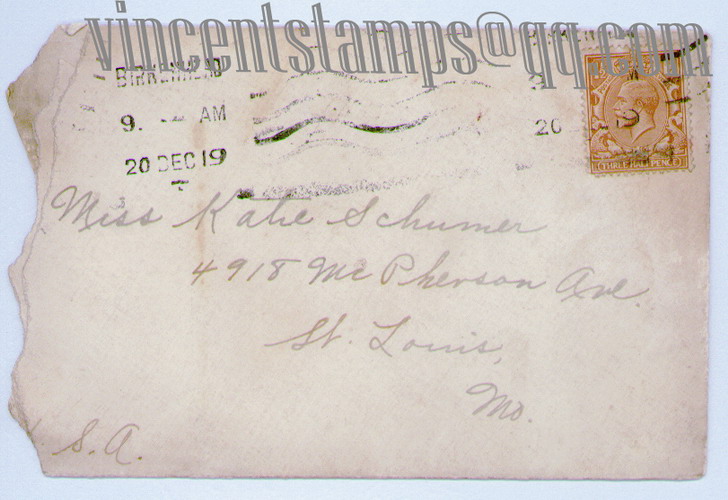 vincentstamps@qq.com
BIRKENHEAD
9. — AM
20 DEC 19
9
20
19
THREE HALF PENCE
3
Miss Katie Schumer
4918 Mc Pherson Ave.
St. Louis,
Mo.
S. A.